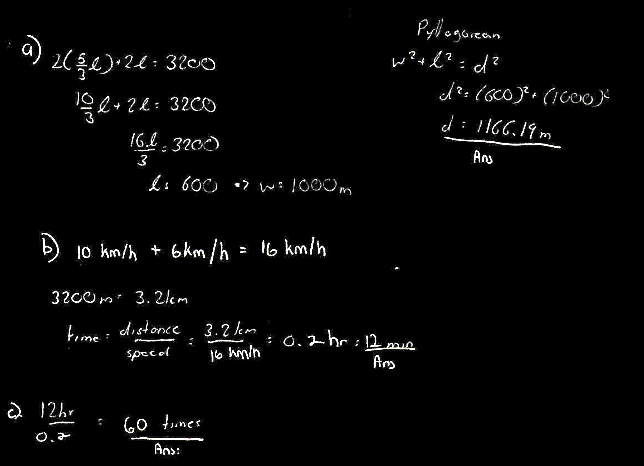 a) 2(5/3 l) + 2l = 3200
10/3 l + 2l = 3200
16l/3 = 3200
l = 600 => w = 1000m
Pythagorean
w² + l² = d²
d² = (600)² + (1000)²
d = 1166.19m
Ans
b) 10 km/h + 6km/h = 16 km/h
3200m = 3.2km
time = distance/speed = 3.2km/16 km/h = 0.2hr = 12 min
Ans
c) 12hr/0.2 = 60 times
Ans: